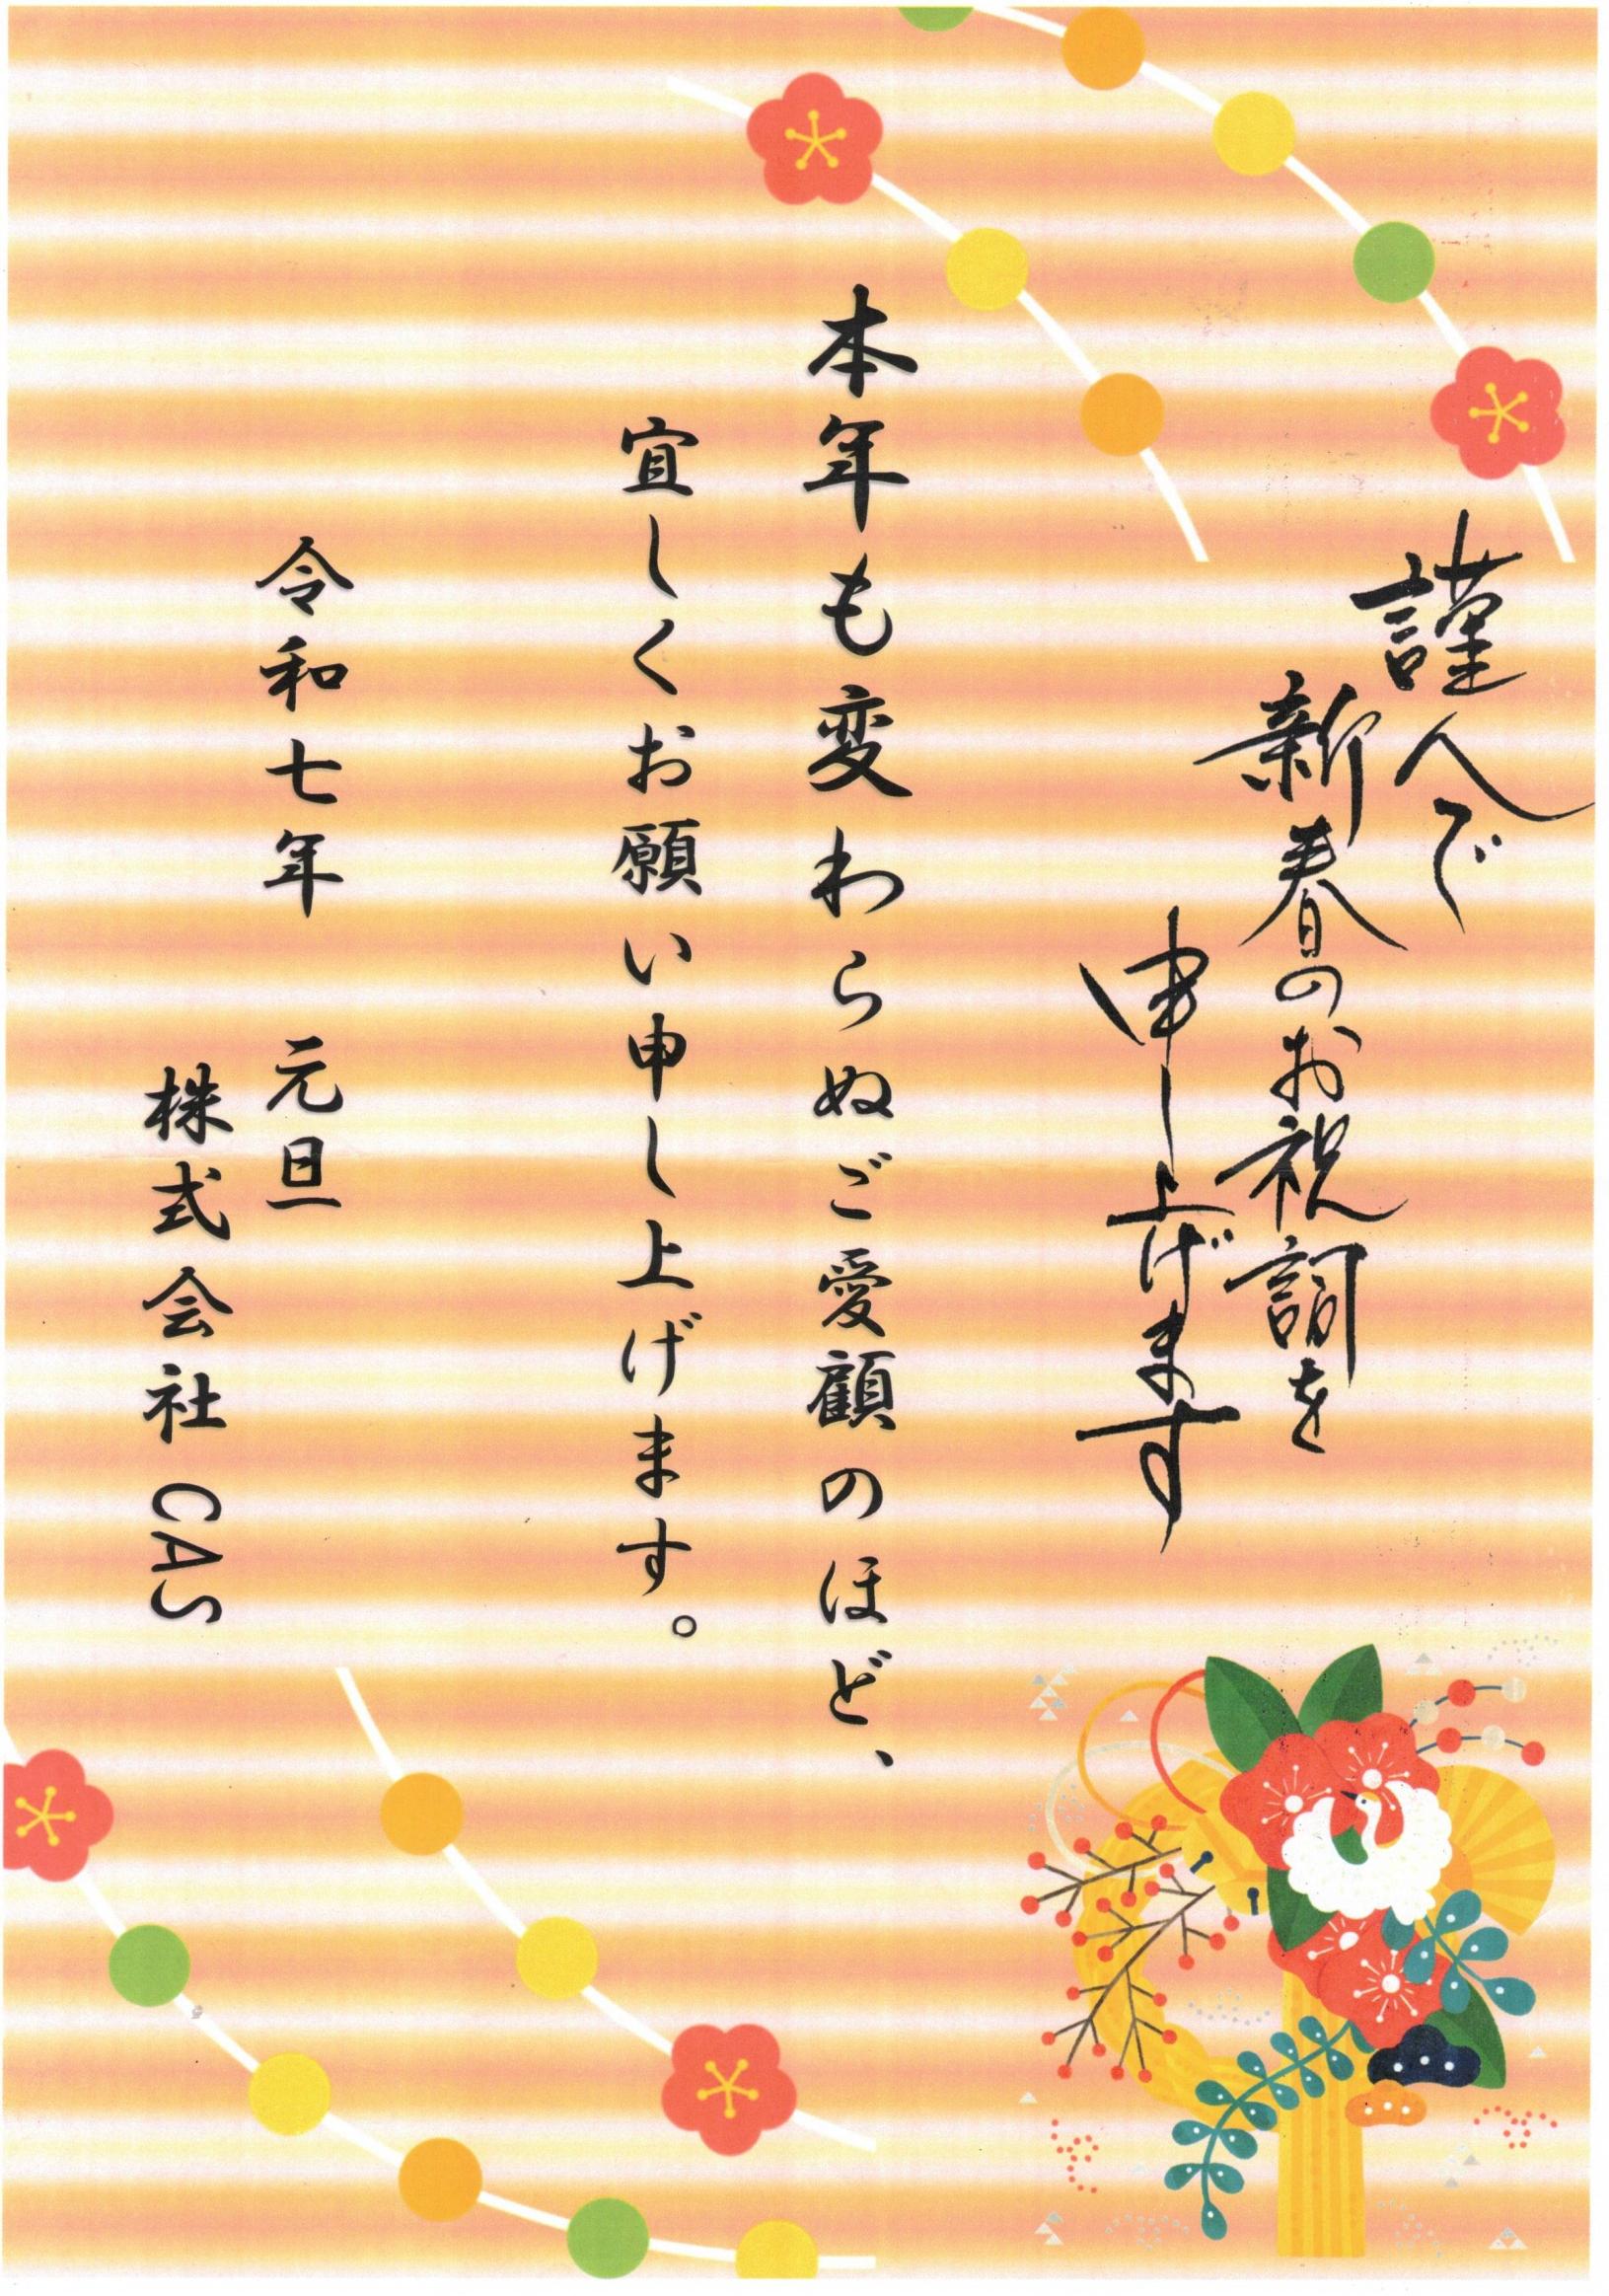 謹んで
新春のお祝詞を
申し上げます
本年も変わらぬご愛顧のほど、
宜しくお願い申し上げます。
令和七年　元旦
株式会社CAS